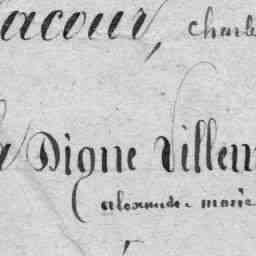 acour, Charle
a Digne Villem
(alexandre-marie